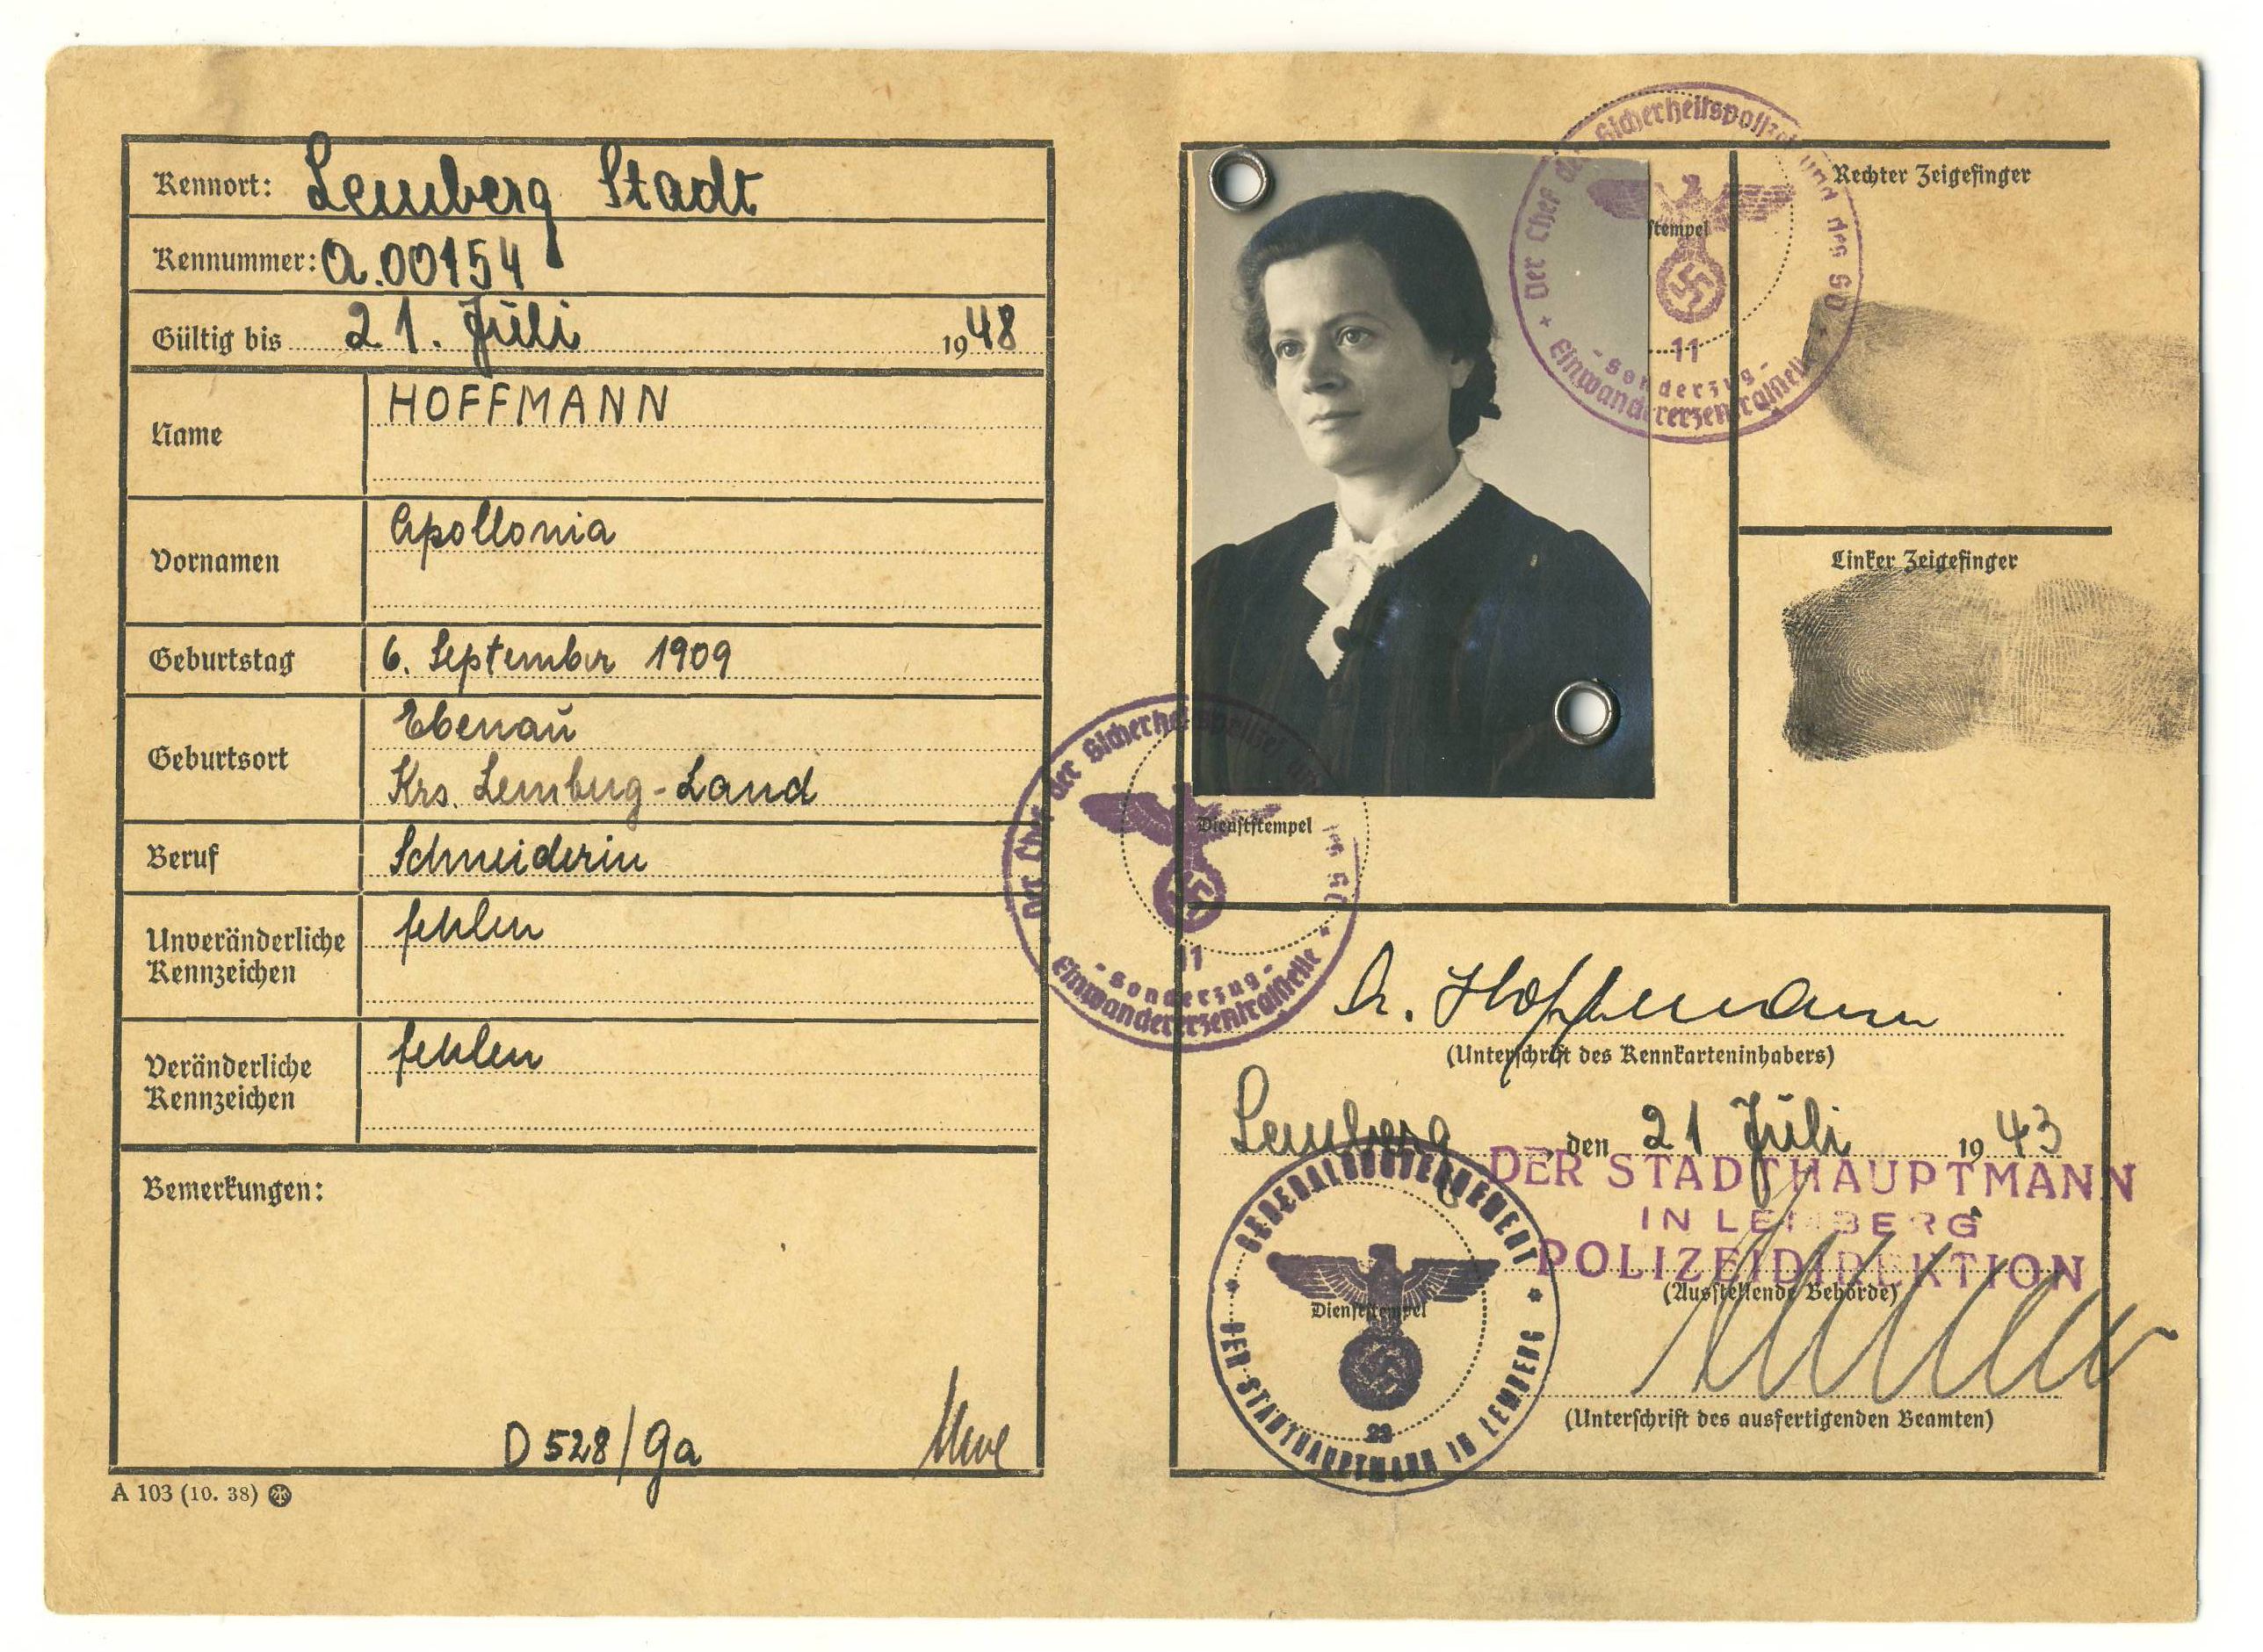 Kennort: Lemberg Stadt
Kennummer: A.00154
Gültig bis 21. Juli 1948
Name HOFFMANN
Vornamen Apollonia
Geburtstag 6. September 1909
Geburtsort Ebenau
Krs. Lemberg-Land
Beruf Schneiderin
Unveränderliche Kennzeichen fehlen
Veränderliche Kennzeichen fehlen
Bemerkungen:
D 528/ga
A 103 (10. 38)
Der Chef der Sicherheitspolizei und des SD
11
- Sonderzug -
Einwandererzentralstelle
stempel
Rechter Zeigefinger
Linker Zeigefinger
Der Chef der Sicherheitspolizei und des SD
Dienststempel
11
- Sonderzug -
Einwandererzentralstelle
A. Hoffmann
(Unterschrift des Kennkarteninhabers)
Lemberg, den 21 Juli 1943
DER STADTHAUPTMANN
IN LEMBERG
POLIZEIDIREKTION
(Ausstellende Behörde)
GENERALGOUVERNEMENT
Dienststempel
23
DER STADTHAUPTMANN IN LEMBERG
(Unterschrift des ausfertigenden Beamten)